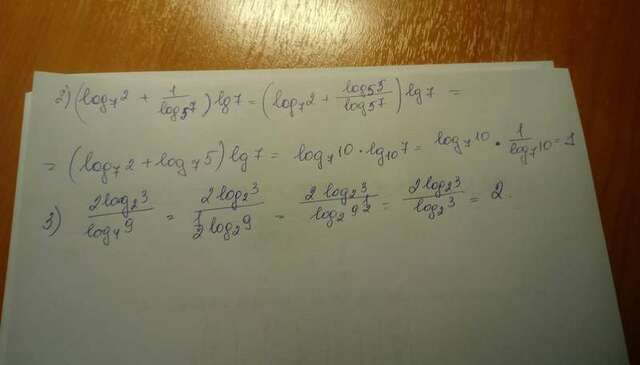 2) (log₇2 + 1/log₅7) lg7 = (log₇2 + log₅5/log₅7) lg7 =
= (log₇2 + log₇5) lg7 = log₇10 · lg₁₀7 = log₇10 · 1/log₇10 = 1
3) 2log₂3/log₄9 = 2log₂3/(1/2 log₂9) = 2log₂3/log₂9^(1/2) = 2log₂3/log₂3 = 2.